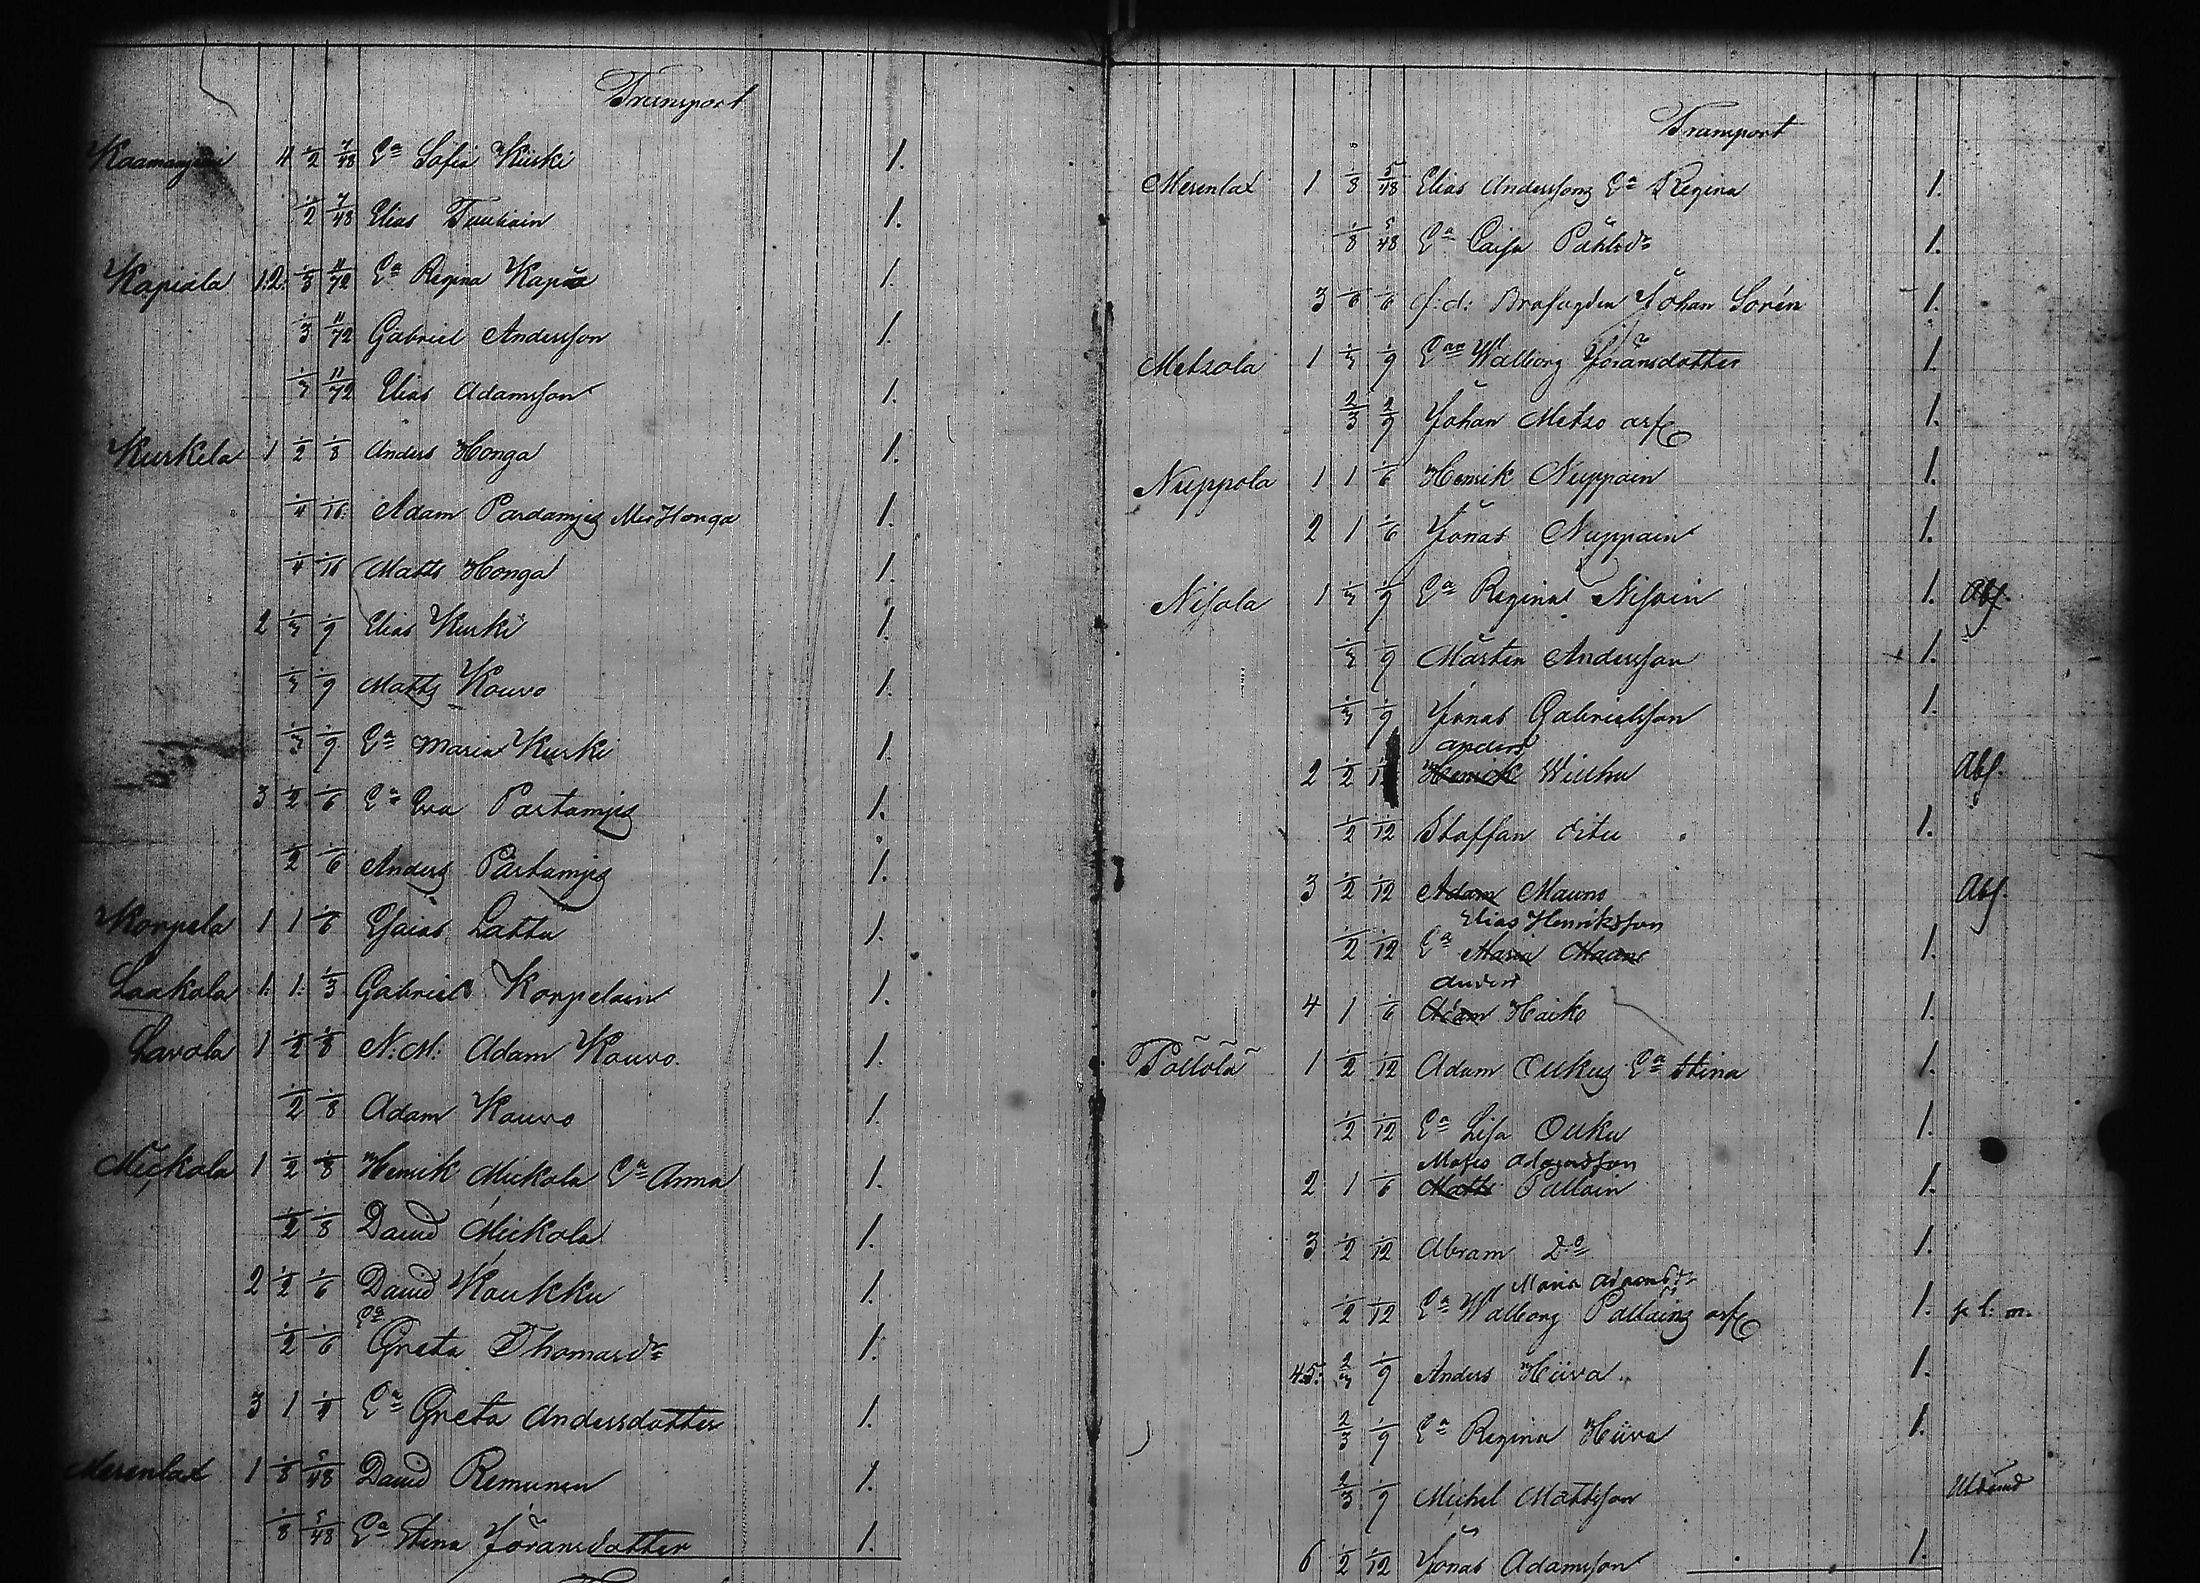 Transport
4 1/2 7/48 Ea Sofia Kurki 1.
1/2 7/48 Elias 1.
Kapiala 1.2. 1/3 11/72 Ea Regina 1.
1/3 11/72 Gabriel Andersson 1.
1/3 11/72 Elias Adamsson 1.
Kurkela 1 1/2 1/8 Anders Honga 1.
1/4 1/16 Adam Partamies Honga 1.
1/4 1/16 Matts Honga 1.
2 1/3 1/9 Elias Kurki 1.
1/3 1/9 Matts Kouvo 1.
1/3 1/9 Ea Maria Kurki 1.
3 1/2 1/6 Ea Eva Partamjes 1.
1/2 1/6 Anders Partamjes 1.
Korpela 1 1 1/6 Esaias Lattu 1.
Laakola 1. 1. 1/3 Gabriel Korpelain 1.
Lavola 1 1/2 1/8 N:M: Adam Kouvo. 1.
1/2 1/8 Adam Kouvo 1.
Mickola 1 1/2 1/8 Henrik Mickola Ea Anna 1.
1/2 1/8 David Mickola 1.
2 1/2 1/6 David Koukku 1.
1/2 1/6 Ea Greta Thomasdr 1.
3 1 1/4 Ea Greta Andersdotter 1.
Merenlax 1 1/8 5/48 David Remunen 1.
1/8 5/48 Ea Stina Jöransdotter 1.
Transport
Merenlax 1 1/8 5/48 Elias Anderssons Ea Regina 1.
1/8 5/48 Ea Caisa Påhlsdr 1.
3 1/6 1/6 f:d: Brofogden Johan Lorén 1.
Metzola 1 1/3 1/9 Walborg Jöransdotter 1.
2/3 2/9 Johan Metzo arf 1.
Nuppola 1 1 1/6 Henrik Nuppoin 1.
2 1 1/6 Jonas Nuppain 1.
Nisola 1 1/3 1/9 Ea Regina Nisoin 1. Abf.
1/3 1/9 Mårten Andersson 1.
1/3 1/9 Jonas Gabrielsson 1.
Anders
2 1/2 Henrik Wilhu Abf.
1/2 1/12 Staffan Ditu 1.
3 1/2 1/12 Adam Mauno Abf.
Elias Henriksson
1/2 1/12 Ea Maria Mauno 1.
Anders
4 1 1/6 Adam Haiko 1.
Pöllölä 1 1/2 1/12 Adam Oukus Ea Stina 1.
1/2 1/12 Ea Lisa Ouku 1.
Adamsson
2 1 1/6 Matts Pöllöin 1.
3 1/2 1/12 Abram Do 1.
Maria Adamsdr
1/2 1/12 Ea Walborg Pöllöins arf 1.
4.5. 2/3 1/9 Anders Hüva 1.
2/3 1/9 Ea Regina Hüva 1.
2/3 1/9 Michel Mattsson
6 1/2 1/12 Jonas Adamsson 1.